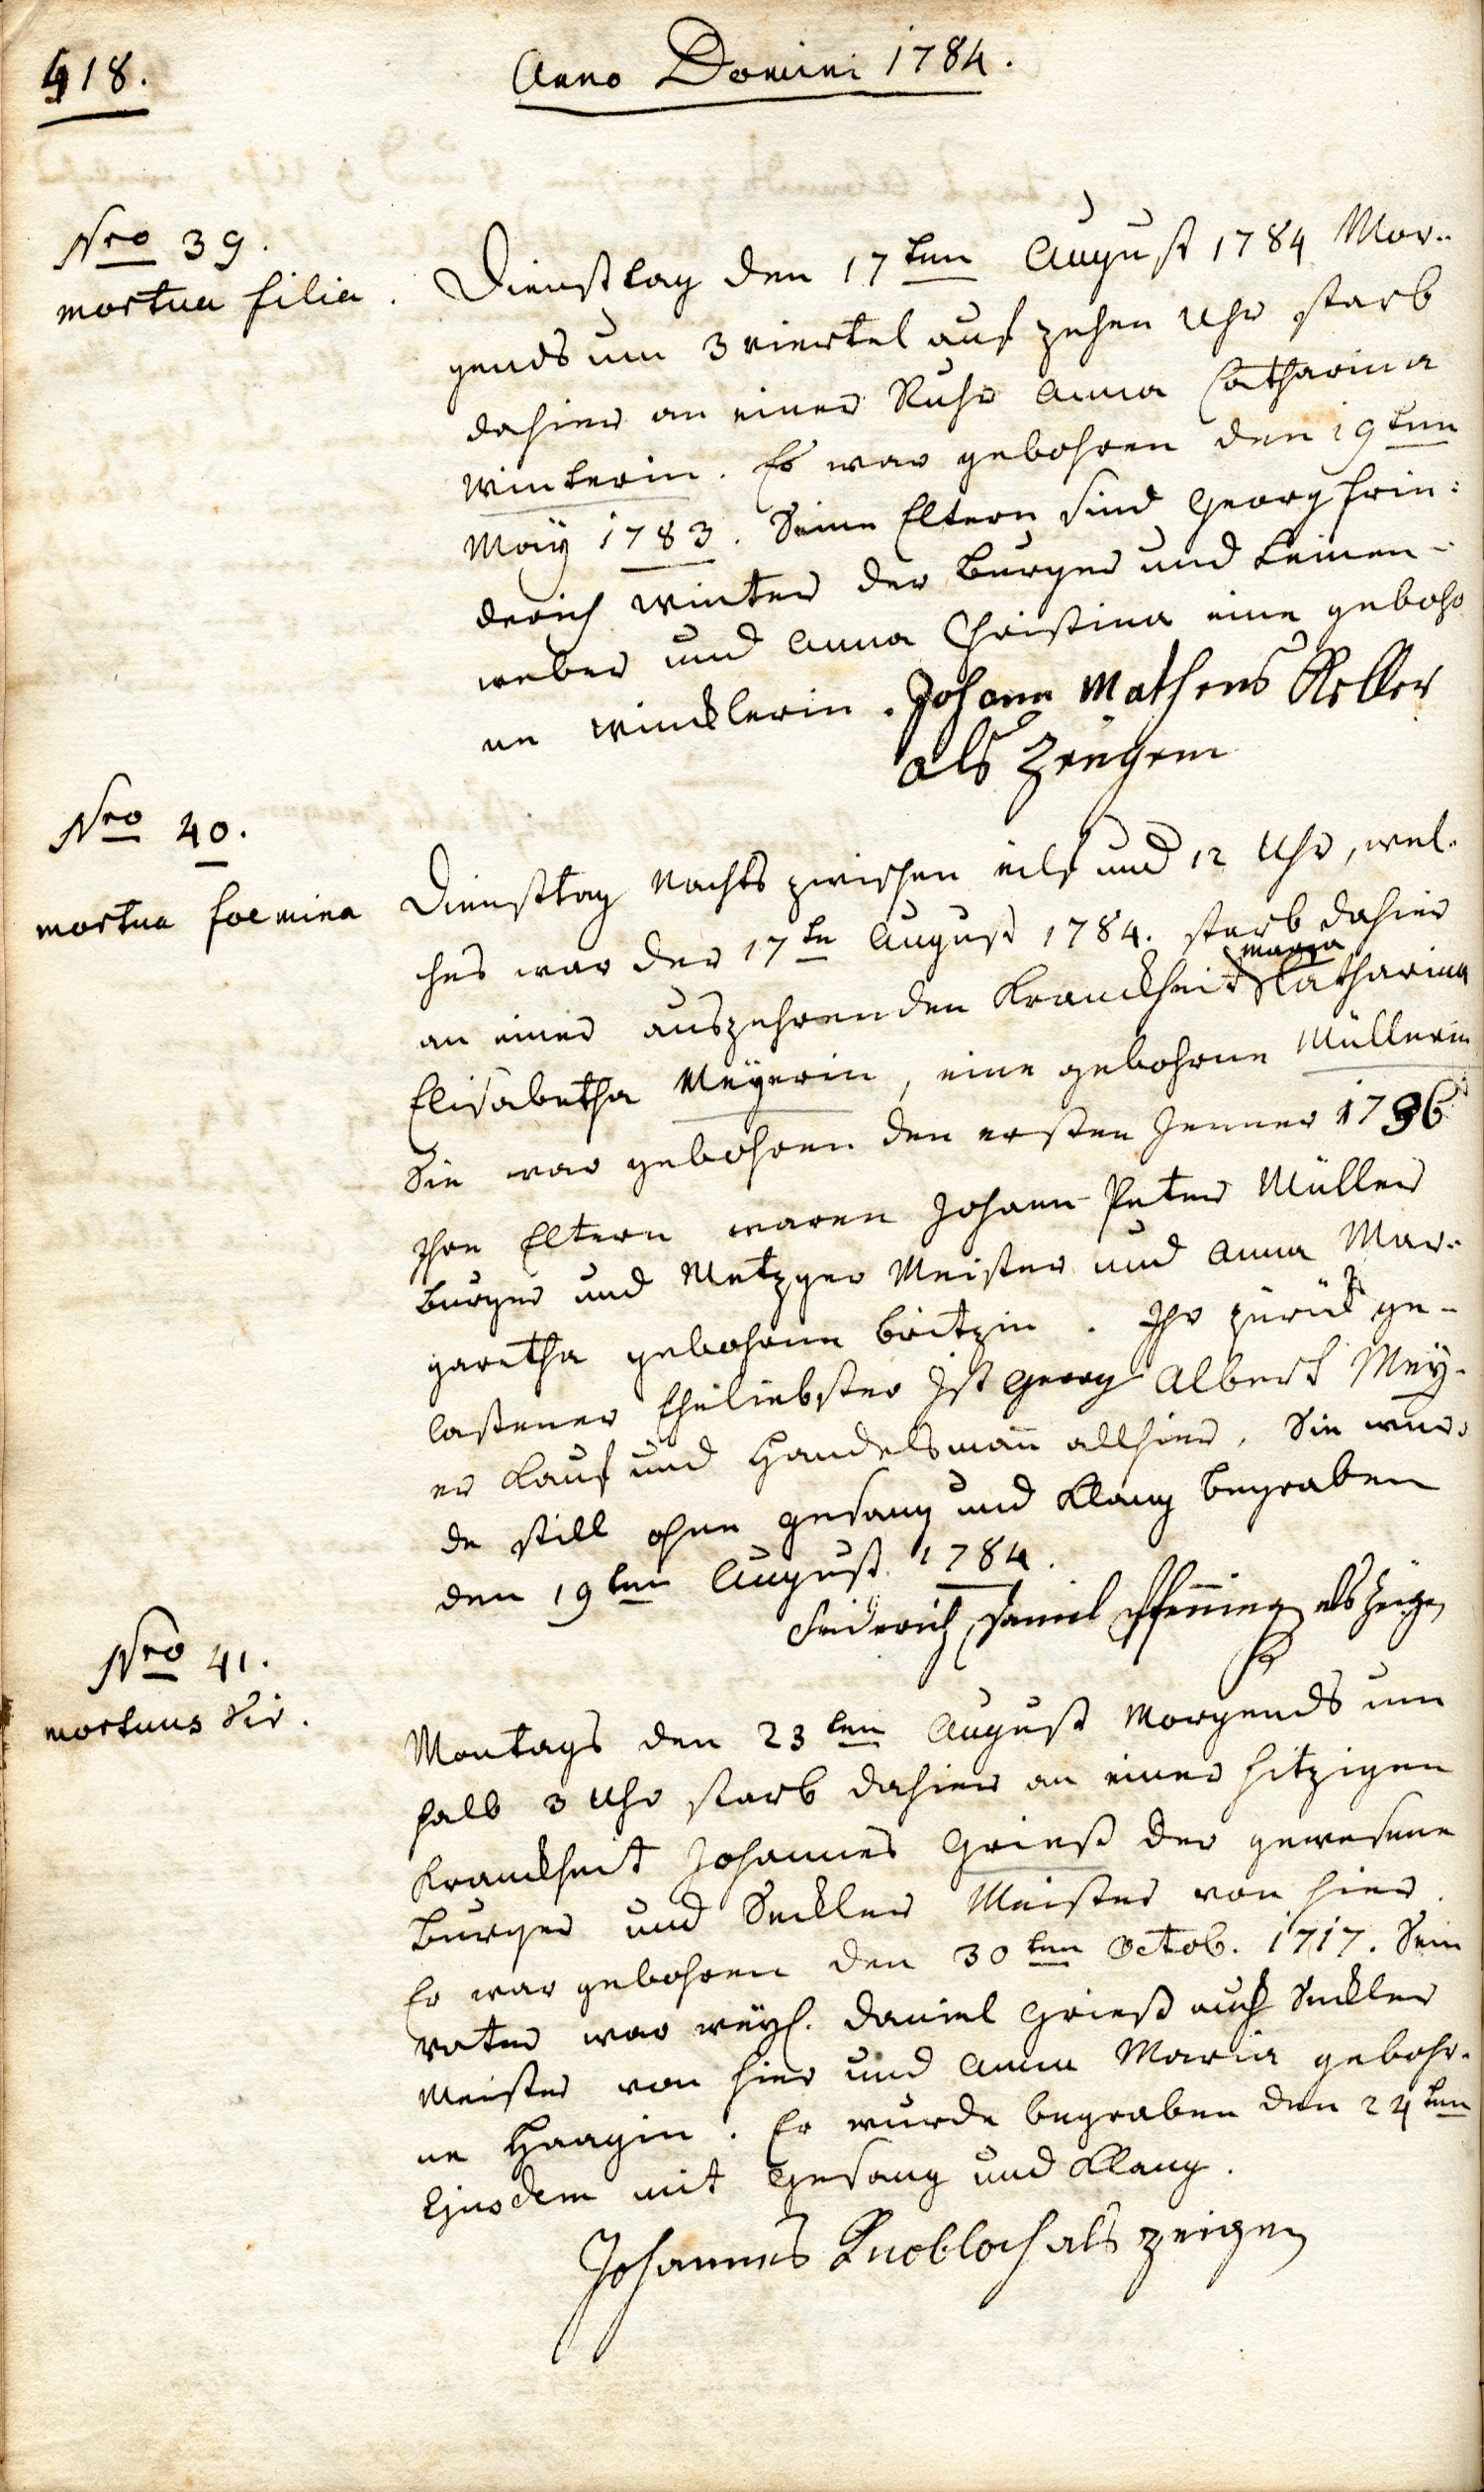 418.
Anno Domini 1784.
Nro 39.
mortua filia.
Dienstag den 17ten August 1784 Mor-
gends um 3 viertel auf zehen Uhr starb
dahier an einer Ruhr Anna Catharina
Winterin. Es war gebohren den 19ten
May 1783. Seine Eltern sind Georg Frie-
derich Winter der Burger und Leinen-
weber und Anna Christina eine gebohr
ne Wincklerin. Johann Matheus Keller
als Zeugen
Nro 40.
mortua foemina
Diensttag Nachts zwischen eilf und 12 Uhr, wel-
ches war der 17te August 1784. starb dahier
an einer auszehrenden Kranckheit Catharina
Elisabetha Meyerin, eine gebohrne Müllerin
Sie war gebohren den ersten Jenner 1736
Ihre Eltern waren Johann Peter Müller
Burger und Metzger Meister und Anna Mar-
garetha gebohrne Böitzin. Ihr zurück ge-
lassener Eheliebster ist Georg Albert Mey-
er Kauf und Handelsmañ allhier. Sie wur-
de still ohne Gesang und Klang begraben
den 19ten August 1784.
Friderich Daniel Pfenning als Zeuge
Nro 41.
mortuus Vir.
Montags den 23ten August Morgends um
halb 3 Uhr starb dahier an einer hitzigen
Kranckheit Johannes Grieß der gewesene
Burger und Seckler Meister von hier.
Er war gebohren den 30ten Octob. 1717. Sein
Vater war weyl. Daniel Grieß auch Seckler
Meister von hier und Anna Maria gebohr-
ne Haagin. Er wurde begraben den 24ten
Ejusdem mit Gesang und Klang.
Johannes Knobloch als zeigen